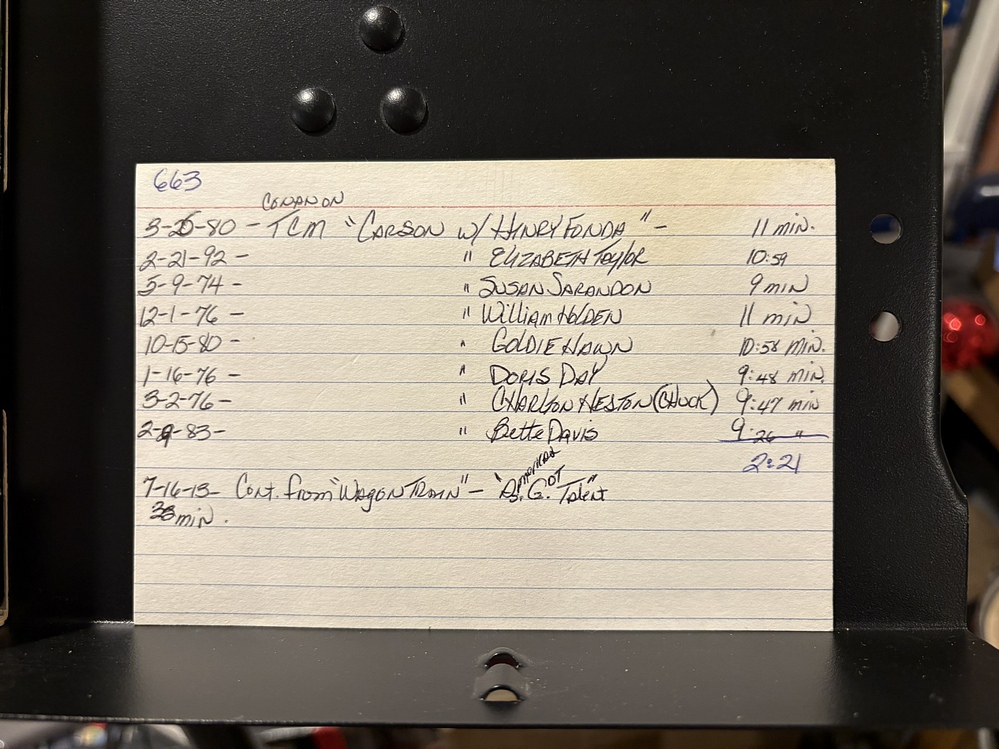 663
CONAN ON
3-25-80 - TCM "CARSON w/ HENRY FONDA" - 11 min.
2-21-92 - " ELIZABETH TAYlOR 10:59
5-9-74 - " SUSAN SARANDON 9 min
12-1-76 - " William HOLDEN 11 min
10-15-80 - " GOLDIE HAWN 10:58 MIN.
1-16-76 - " DORIS DAY 9:48 min.
3-2-76 - " CHARLTON HESTON (CHUCK) 9:47 min
2-9-83 - " Bette Davis 9:26 "
2:21
AMERICAS GOT
7-16-13 - Cont. from "WAGON TRAIN" - "A. G. Talent"
38 min.